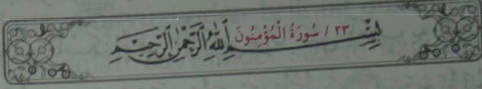 ٢٣ / سُورَةُ الْمُؤْمِنُونَ
بِسْمِ اللَّهِ الرَّحْمَٰنِ الرَّحِيمِ